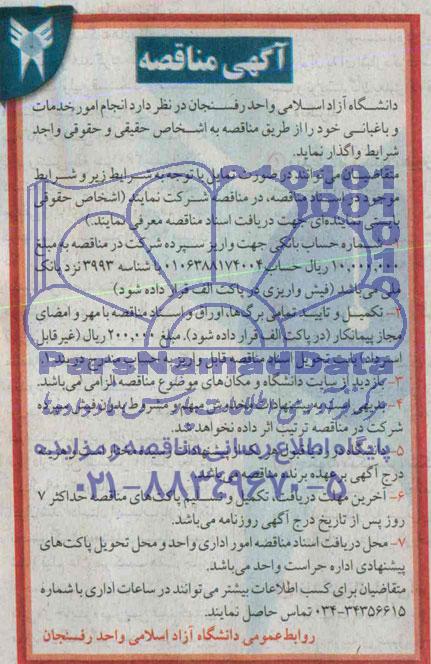 آگهی مناقصه
دانشگاه آزاد اسلامی واحد رفسنجان در نظر دارد انجام امور خدمات
و باغبانی خود را از طریق مناقصه به اشخاص حقیقی و حقوقی واجد
شرایط واگذار نماید.
متقاضیان می‌توانند در صورت تمایل با توجه به شرایط زیر و شرایط
موجود در اسناد مناقصه، در مناقصه شرکت نمایند (اشخاص حقوقی
بایستی نماینده‌ای جهت دریافت اسناد مناقصه معرفی نمایند.)
۱- شماره حساب بانکی جهت واریز سپرده شرکت در مناقصه به مبلغ
۱۰,۰۰۰,۰۰۰ ریال حساب ۰۱۰۶۳۸۸۱۷۴۰۰۴ با شناسه ۳۹۹۳ نزد بانک
ملی می‌باشد (فیش واریزی در پاکت الف قرار داده شود)
۲- تکمیل و تایید تمامی برگ‌ها، اوراق و اسناد مناقصه با مهر و امضای
مجاز پیمانکار (در پاکت الف قرار داده شود). مبلغ ۲۰۰,۰۰۰ ریال (غیر قابل
استرداد) بابت تحویل اسناد مناقصه قابل واریز به حساب مندرج در بند ۱.
۳- بازدید از سایت دانشگاه و مکان‌های موضوع مناقصه الزامی می‌باشد.
۴- به پیشنهادات مبهم و مشروط و بدون فیش سپرده
شرکت در مناقصه ترتیب اثر داده نخواهد شد.
۵- دانشگاه در رد یا قبول هر یک از پیشنهادات هزینه
درج آگهی بر عهده برنده مناقصه می‌باشد.
۶- آخرین مهلت دریافت، تکمیل و تسلیم پاکت‌های مناقصه حداکثر ۷
روز پس از تاریخ درج آگهی روزنامه می‌باشد.
۷- محل دریافت اسناد مناقصه امور اداری واحد و محل تحویل پاکت‌های
پیشنهادی اداره حراست واحد می‌باشد.
متقاضیان برای کسب اطلاعات بیشتر می‌توانند در ساعات اداری با شماره
۰۳۴-۳۴۳۵۶۶۱۵ تماس حاصل نمایند.
روابط عمومی دانشگاه آزاد اسلامی واحد رفسنجان
ParsNamadData
پایگاه اطلاع رسانی مناقصه و مزایده
۰۲۱-۸۸۳۴۹۶۷۰-۵